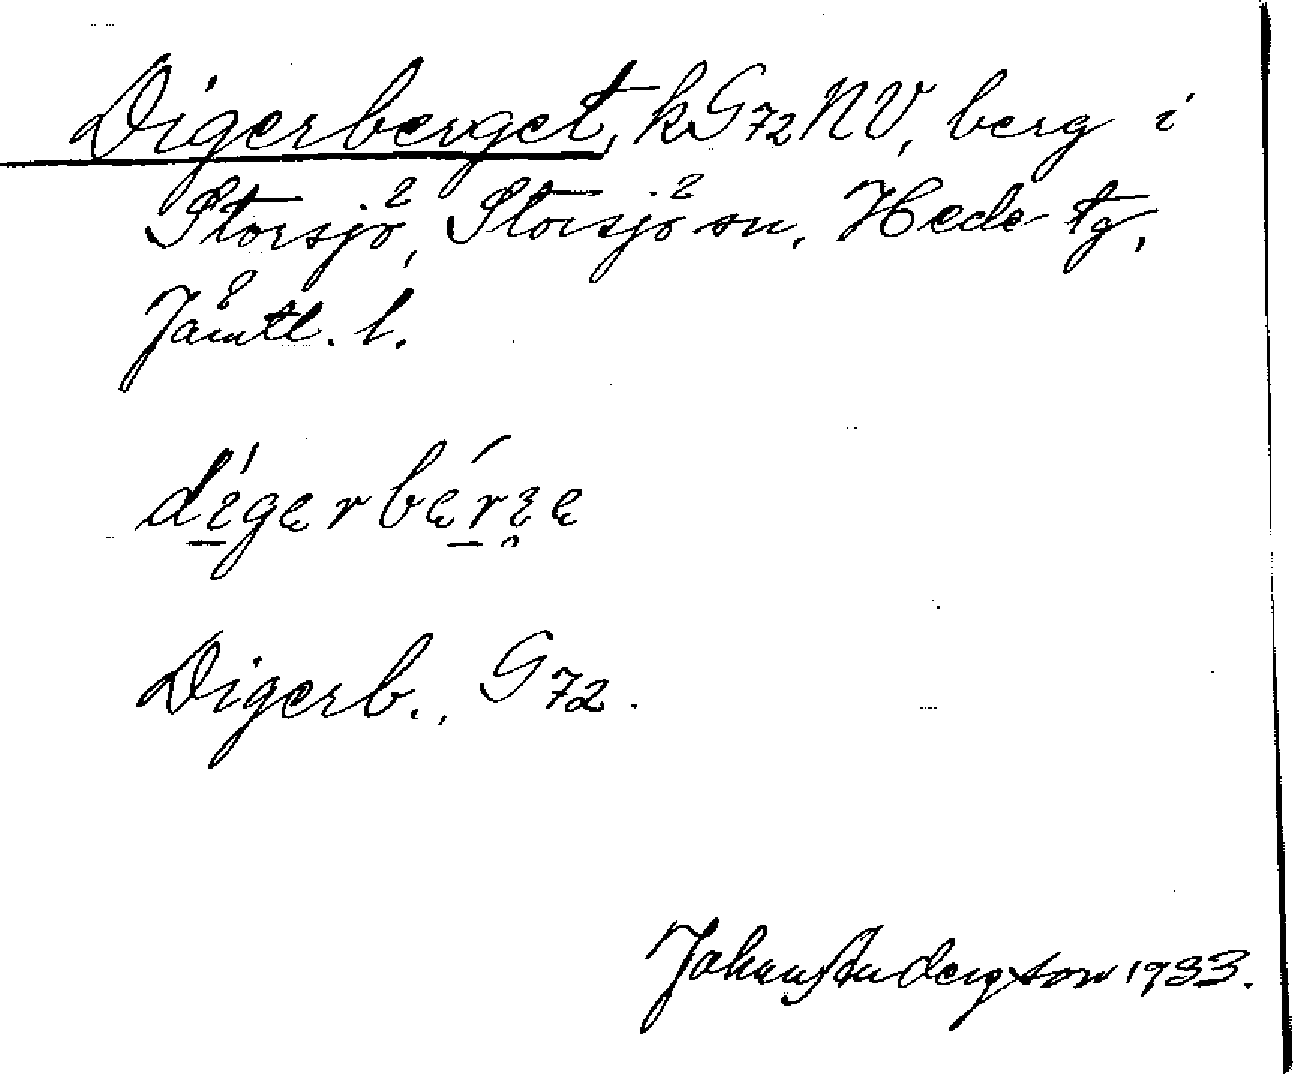 Digerberget, kG72NV, berg i
Storsjö, Storsjö sn, Hede tg,
Jämtl. l.
dígerbérʒe
Digerb., G72.
Johan Andersson 1933.